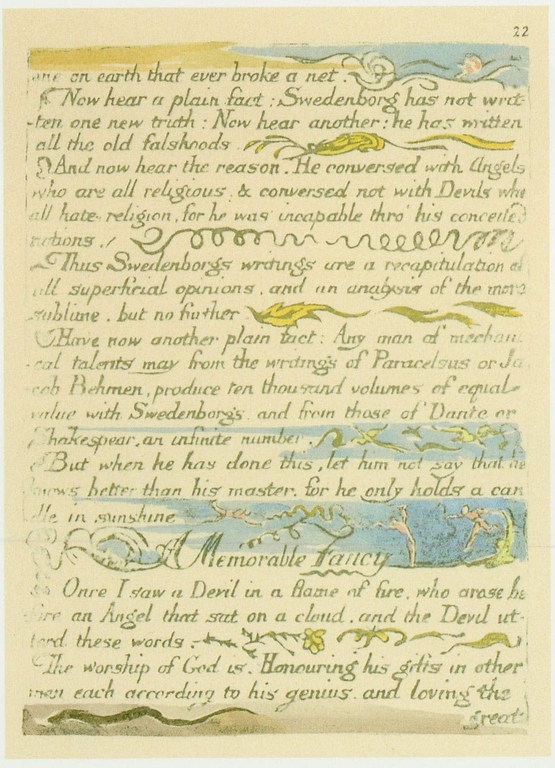 22
one on earth that ever broke a net.
Now hear a plain fact: Swedenborg has not writ-
-ten one new truth: Now hear another: he has written
all the old falshoods.
And now hear the reason. He conversed with Angels
who are all religious, & conversed not with Devils who
all hate religion, for he was incapable thro' his conceited
notions.
Thus Swedenborgs writings are a recapitulation of
all superficial opinions, and an analysis of the more
sublime, but no further
Have now another plain fact: Any man of mechani-
-cal talents may from the writings of Paracelsus or Ja-
-cob Behmen, produce ten thousand volumes of equal
value with Swedenborgs. and from those of Dante or
Shakespear, an infinite number.
But when he has done this, let him not say that he
knows better than his master, for he only holds a can
dle in sunshine
A Memorable Fancy
Once I saw a Devil in a flame of fire. who arose be
fore an Angel that sat on a cloud. and the Devil ut-
terd these words.
The worship of God is. Honouring his gifts in other
men each according to his genius. and loving the
great